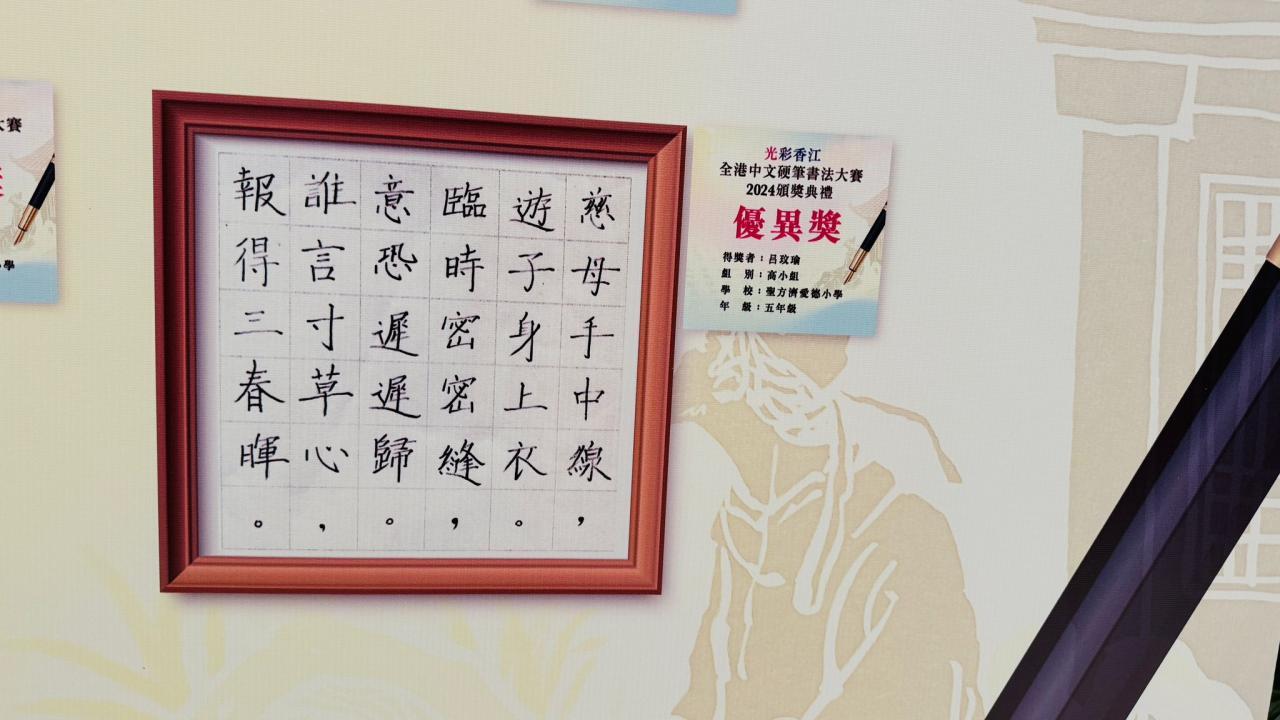 慈母手中線，
遊子身上衣。
臨時密密縫，
意恐遲遲歸。
誰言寸草心，
報得三春暉。
光彩香江
全港中文硬筆書法大賽
2024頒獎典禮
優異獎
得獎者：呂玟瑜
組　別：高小組
學　校：聖方濟愛德小學
年　級：五年級
大賽
小學